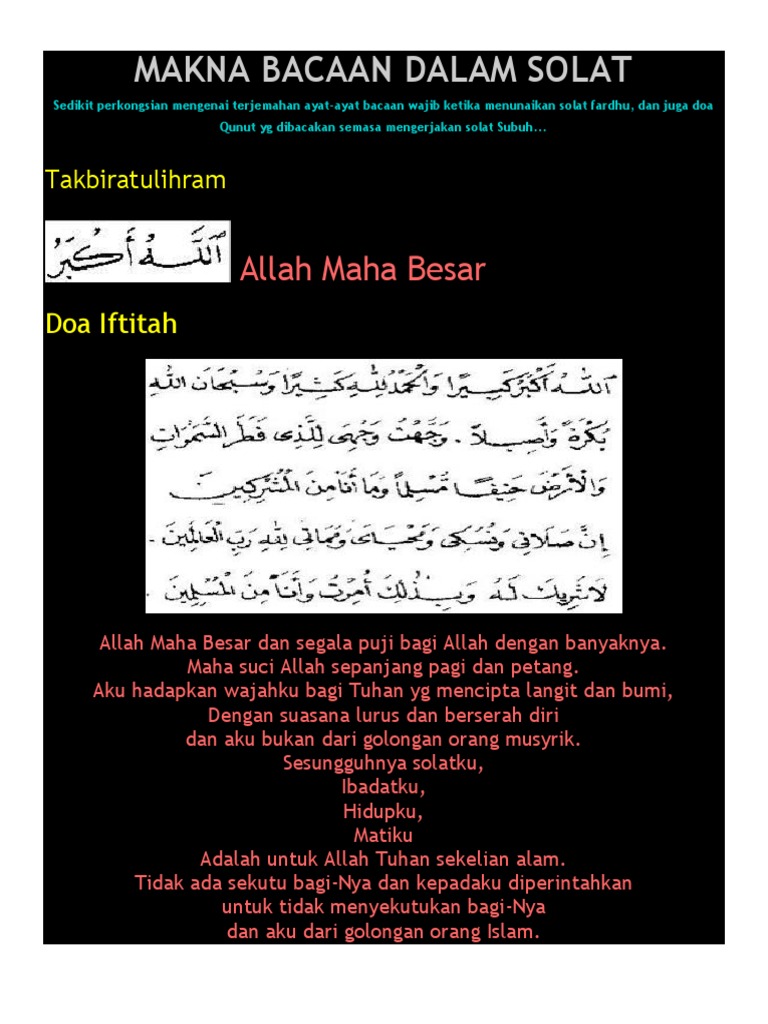 MAKNA BACAAN DALAM SOLAT
Sedikit perkongsian mengenai terjemahan ayat-ayat bacaan wajib ketika menunaikan solat fardhu, dan juga doa
Qunut yg dibacakan semasa mengerjakan solat Subuh...
Takbiratulihram
اَللَّهُ أَكْبَرُ Allah Maha Besar
Doa Iftitah
اَللهُ أَكْبَرُ كَبِيْرًا وَالْحَمْدُ لِلّهِ كَثِيْرًا وَسُبْحَانَ اللهِ
بُكْرَةً وَأَصِيلاً . وَجَّهْتُ وَجْهِيَ لِلَّذِى فَطَرَ السَّمَوَاتِ
وَالْأَرْضَ حَنِيفًا مُسْلِمًا وَمَا أَنَا مِنَ الْمُشْرِكِينَ
إِنَّ صَلَاتِى وَنُسُكِى وَمَحْيَاىَ وَمَمَاتِى لِلّهِ رَبِّ الْعَالَمِينَ .
لَا شَرِيكَ لَهُ وَبِذَلِكَ أُمِرْتُ وَأَنَا مِنَ الْمُسْلِمِينَ .
Allah Maha Besar dan segala puji bagi Allah dengan banyaknya.
Maha suci Allah sepanjang pagi dan petang.
Aku hadapkan wajahku bagi Tuhan yg mencipta langit dan bumi,
Dengan suasana lurus dan berserah diri
dan aku bukan dari golongan orang musyrik.
Sesungguhnya solatku,
Ibadatku,
Hidupku,
Matiku
Adalah untuk Allah Tuhan sekelian alam.
Tidak ada sekutu bagi-Nya dan kepadaku diperintahkan
untuk tidak menyekutukan bagi-Nya
dan aku dari golongan orang Islam.